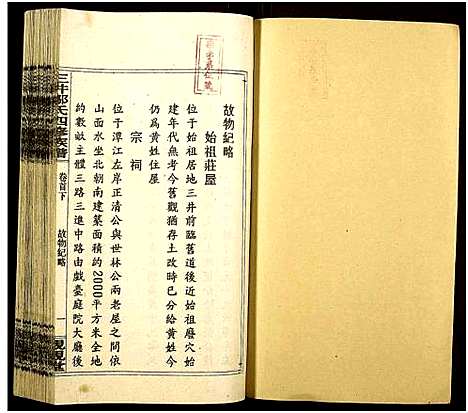 故物紀略
始祖莊屋
位于始祖居地三井前近始祖磨穴始
建年代無考今舊觀猶存土改時已分給黃姓今
仍爲黃姓住屋
宗祠
位于潭江左岸正清公與世林公兩老屋之間依
山面水坐北朝南建築面積約2000平方米全地
約數畝主體三路三進中路由戲臺庭院大廳後
三井鄧氏四修族譜
卷首下
故物紀略
一